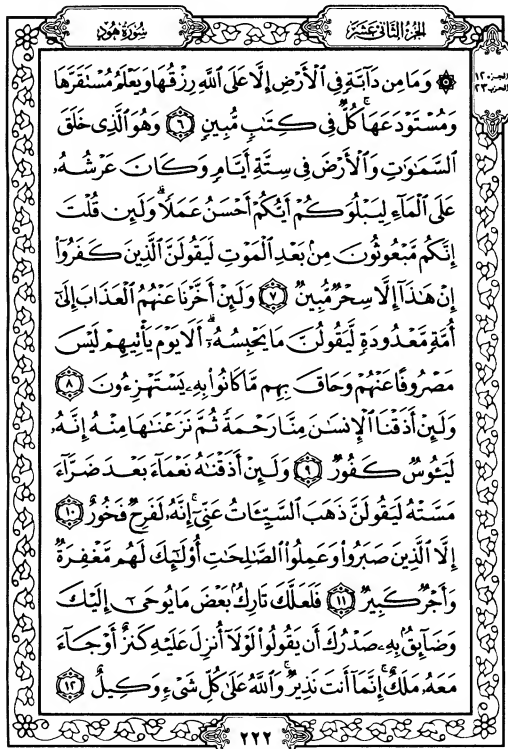 سُورَةُ هُودٍ
الجُزْءُ الثَّانِي عَشَرَ
الجزء ١٢
الحزب ٢٣
۞ وَمَا مِن دَآبَّةٍ فِى ٱلْأَرْضِ إِلَّا عَلَى ٱللَّهِ رِزْقُهَا وَيَعْلَمُ مُسْتَقَرَّهَا
وَمُسْتَوْدَعَهَا ۚ كُلٌّ فِى كِتَٰبٍ مُّبِينٍ ٦ وَهُوَ ٱلَّذِى خَلَقَ
ٱلسَّمَٰوَٰتِ وَٱلْأَرْضَ فِى سِتَّةِ أَيَّامٍ وَكَانَ عَرْشُهُۥ
عَلَى ٱلْمَآءِ لِيَبْلُوَكُمْ أَيُّكُمْ أَحْسَنُ عَمَلًا ۗ وَلَئِن قُلْتَ
إِنَّكُم مَّبْعُوثُونَ مِنۢ بَعْدِ ٱلْمَوْتِ لَيَقُولَنَّ ٱلَّذِينَ كَفَرُوٓا۟
إِنْ هَٰذَآ إِلَّا سِحْرٌ مُّبِينٌ ٧ وَلَئِنْ أَخَّرْنَا عَنْهُمُ ٱلْعَذَابَ إِلَىٰٓ
أُمَّةٍ مَّعْدُودَةٍ لَّيَقُولُنَّ مَا يَحْبِسُهُۥٓ ۗ أَلَا يَوْمَ يَأْتِيهِمْ لَيْسَ
مَصْرُوفًا عَنْهُمْ وَحَاقَ بِهِم مَّا كَانُوا۟ بِهِۦ يَسْتَهْزِءُونَ ٨
وَلَئِنْ أَذَقْنَا ٱلْإِنسَٰنَ مِنَّا رَحْمَةً ثُمَّ نَزَعْنَٰهَا مِنْهُ إِنَّهُۥ
لَيَـُٔوسٌ كَفُورٌ ٩ وَلَئِنْ أَذَقْنَٰهُ نَعْمَآءَ بَعْدَ ضَرَّآءَ
مَسَّتْهُ لَيَقُولَنَّ ذَهَبَ ٱلسَّيِّـَٔاتُ عَنِّىٓ ۚ إِنَّهُۥ لَفَرِحٌ فَخُورٌ ١٠
إِلَّا ٱلَّذِينَ صَبَرُوا۟ وَعَمِلُوا۟ ٱلصَّٰلِحَٰتِ أُو۟لَٰٓئِكَ لَهُم مَّغْفِرَةٌ
وَأَجْرٌ كَبِيرٌ ١١ فَلَعَلَّكَ تَارِكٌۢ بَعْضَ مَا يُوحَىٰٓ إِلَيْكَ
وَضَآئِقٌۢ بِهِۦ صَدْرُكَ أَن يَقُولُوا۟ لَوْلَآ أُنزِلَ عَلَيْهِ كَنزٌ أَوْ جَآءَ
مَعَهُۥ مَلَكٌ ۚ إِنَّمَآ أَنتَ نَذِيرٌ ۚ وَٱللَّهُ عَلَىٰ كُلِّ شَىْءٍ وَكِيلٌ ١٢
٢٢٢